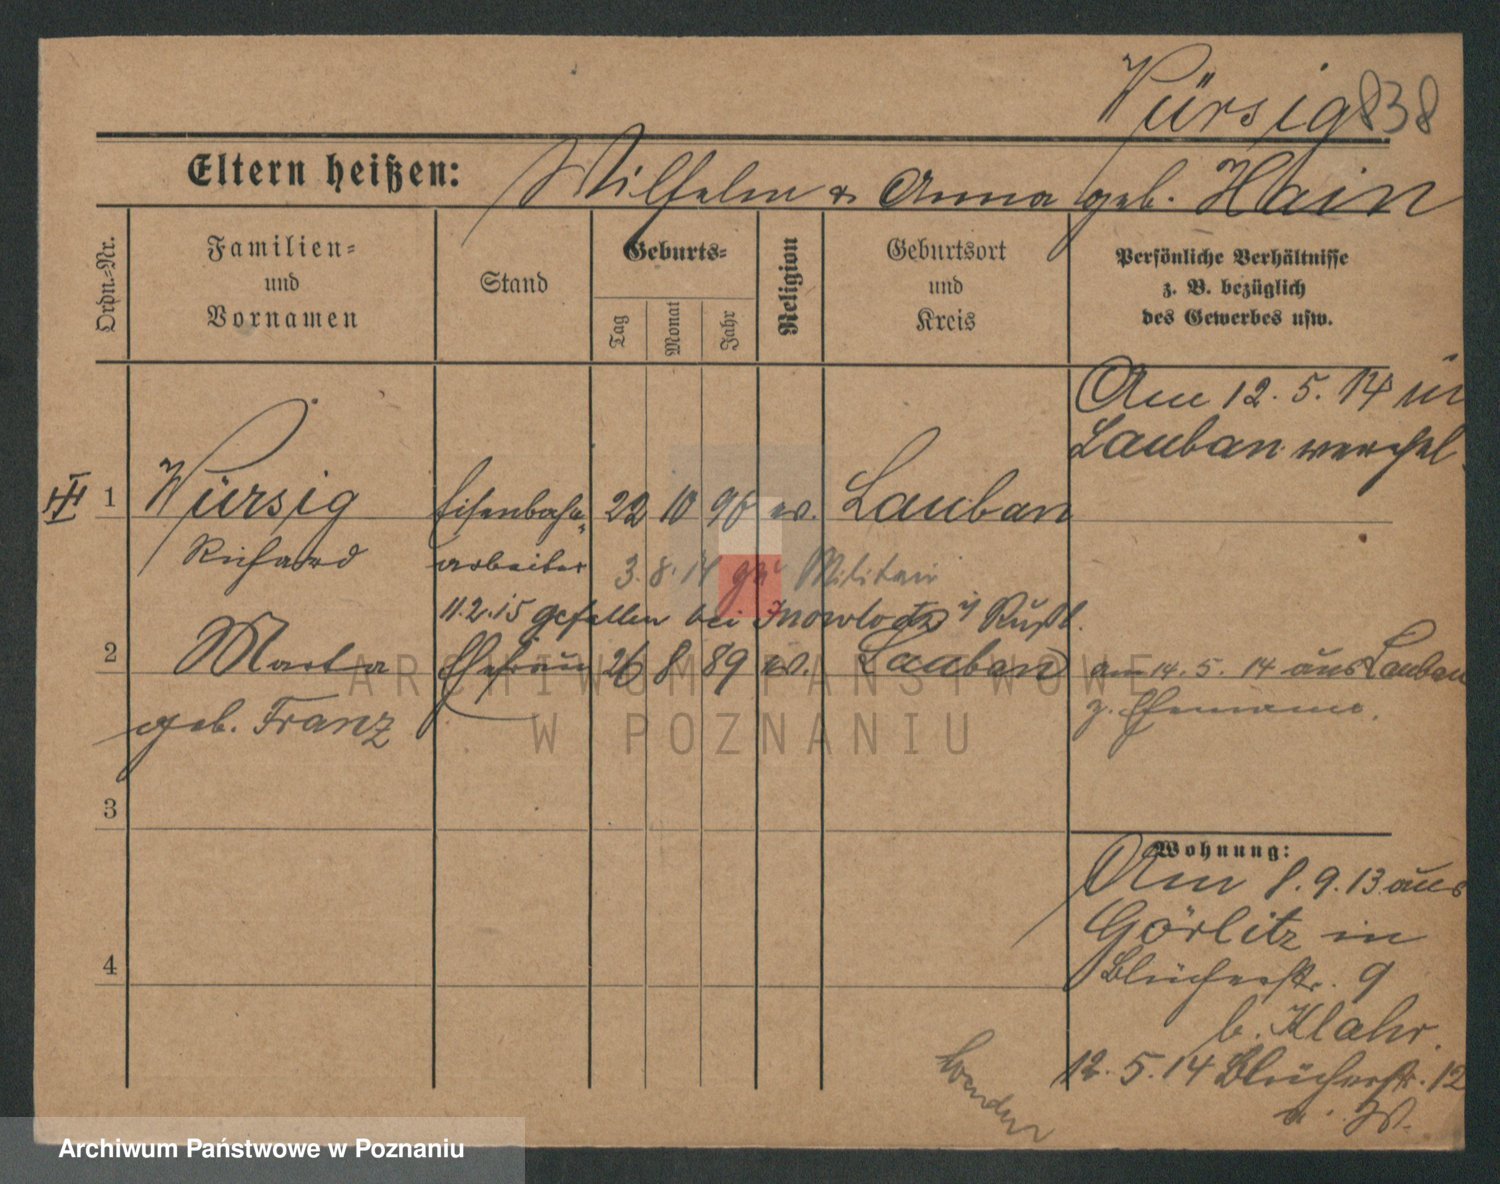 Würsig 838
Eltern heißen: Wilhelm & Anna geb. Hain
Ordn.=Nr.
Familien=
und
Vornamen
Stand
Geburts=
Tag
Monat
Jahr
Religion
Geburtsort
und
Kreis
Persönliche Verhältnisse
z. B. bezüglich
des Gewerbes usw.
Am 12. 5. 14 in
Lauban verehel.
III 1 Würsig Eisenbahn= 22 10 90 ev. Lauban
Richard arbeiter 3. 8. 14 zu Militair
11. 2. 15 gefallen bei Inowlodz i/ Rußl.
2 Marta Ehefrau 26 8 89 ev. Lauban am 14. 5. 14 aus Lauban
geb. Franz z. Ehemanne.
3
4
Wohnung:
Am 8. 9. 13 aus
Görlitz in
Blücherstr. 9
b. Klahr.
12. 5. 14 Blücherstr. 12
W.
Wenden
ARCHIWUM PAŃSTWOWE
W POZNANIU
Archiwum Państwowe w Poznaniu